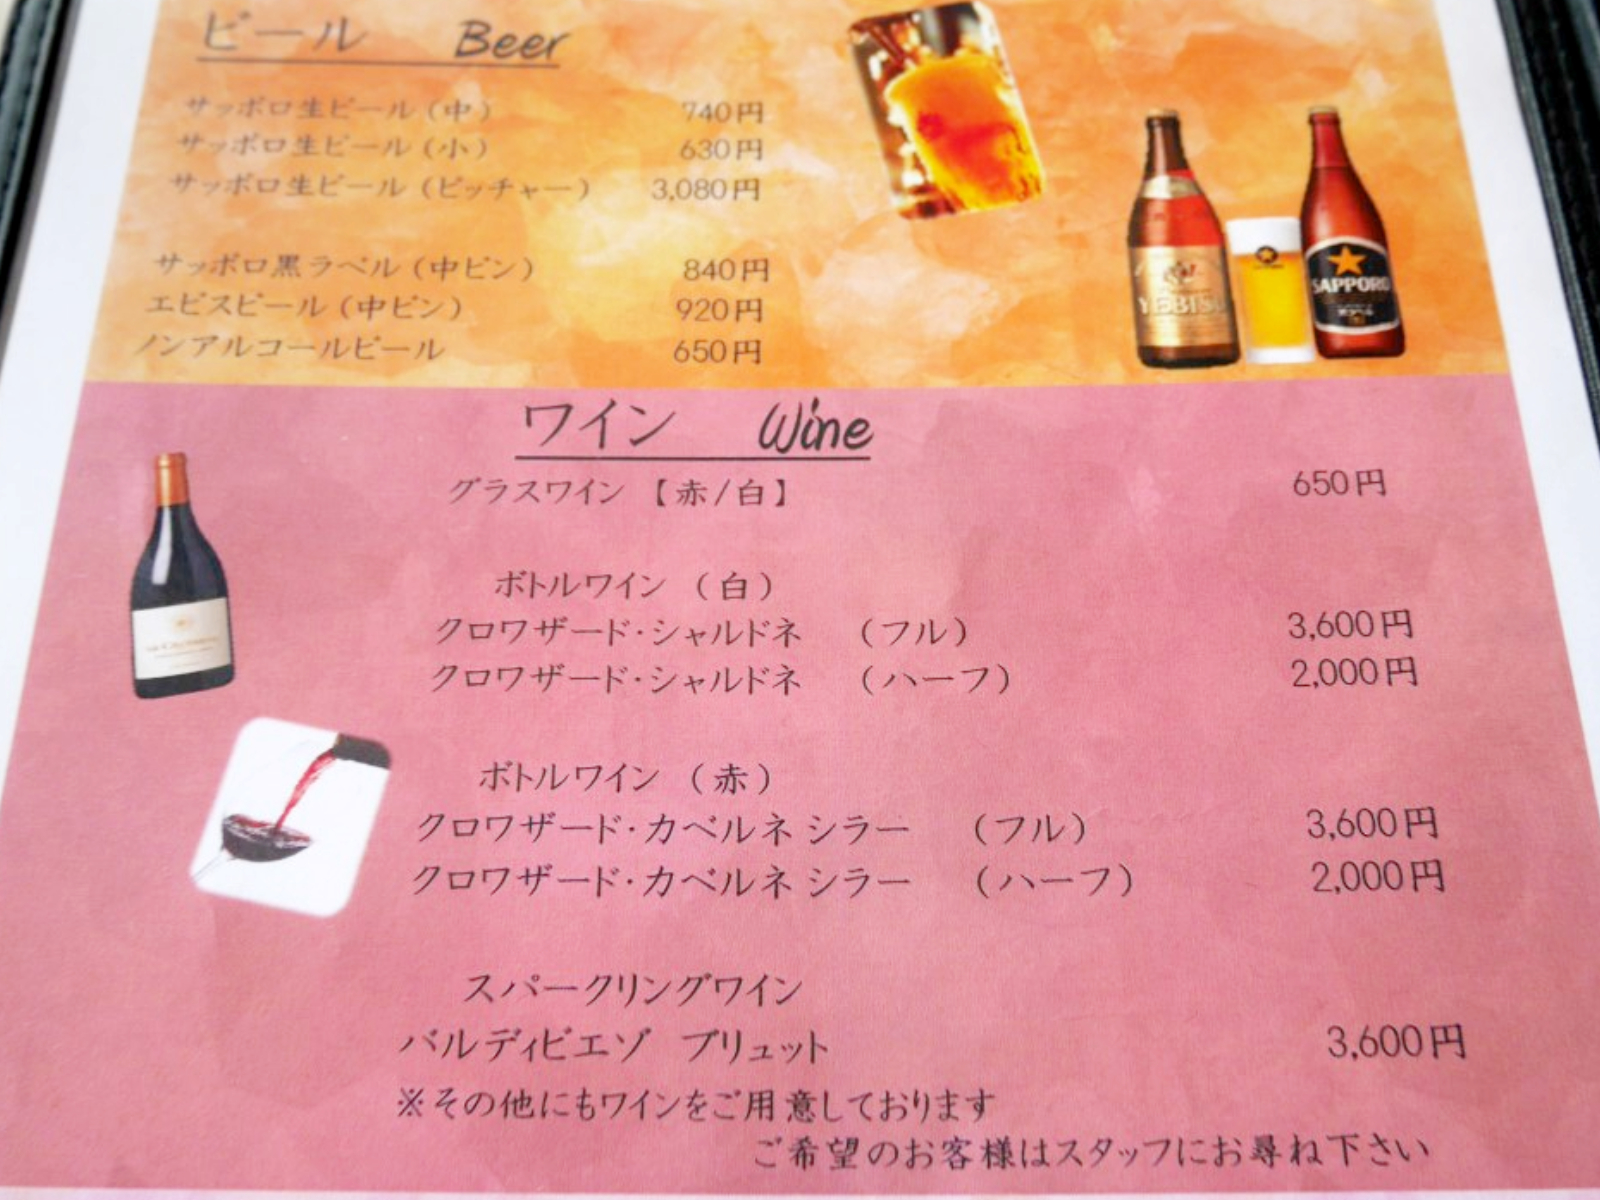 ビール Beer
サッポロ生ビール（中） 740円
サッポロ生ビール（小） 630円
サッポロ生ビール（ピッチャー） 3,080円
サッポロ黒ラベル（中ビン） 840円
エビスビール（中ビン） 920円
ノンアルコールビール 650円
YEBISU
SAPPORO
ワイン Wine
グラスワイン【赤/白】 650円
ボトルワイン（白）
クロワザード・シャルドネ （フル） 3,600円
クロワザード・シャルドネ （ハーフ） 2,000円
ボトルワイン（赤）
クロワザード・カベルネ シラー （フル） 3,600円
クロワザード・カベルネ シラー （ハーフ） 2,000円
スパークリングワイン
バルディビエゾ ブリュット 3,600円
※その他にもワインをご用意しております
ご希望のお客様はスタッフにお尋ね下さい